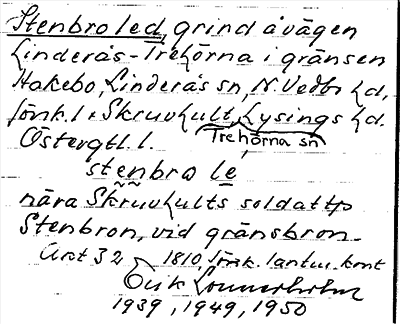 Stenbro led, grind å vägen
Linderås - Trehörna i gränsen
Hakebo, Linderås sn, N. Vedbo hd,
Jönk. l & Skruvhult, Lysings hd.
Trehörna sn
Östergtl. l.
stenbro le
nära Skruvhults soldattp
Stenbron, vid gränsbron.
1810 Jönk. lantm. kont
Erik Lönnerholm
1939, 1949, 1950